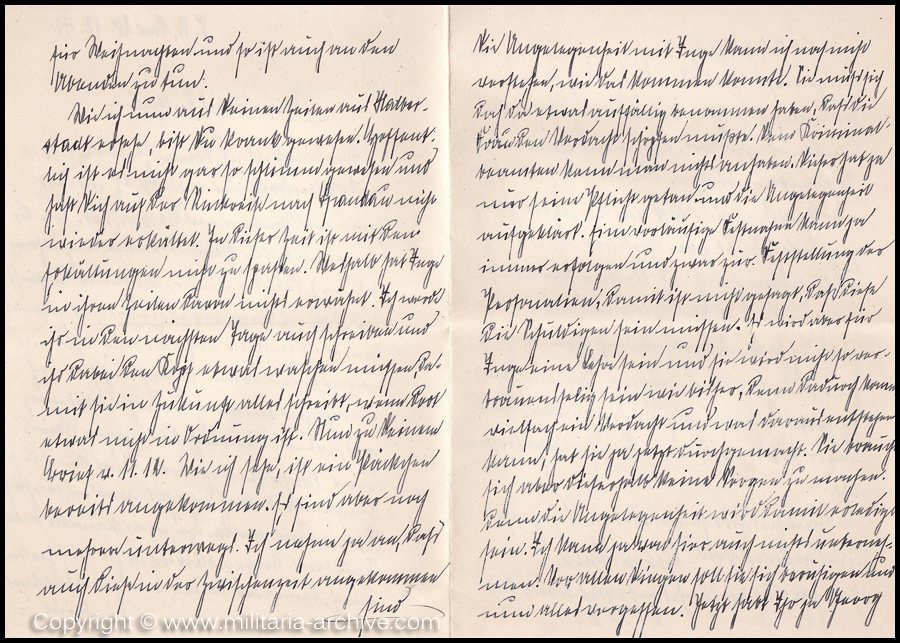 für Weihnachten und so ist auch an den
Abenden zu tun.
Wie ich nun aus Deinen Zeilen aus Halber-
stadt ersehe, bist Du krank gewesen. Hoffent-
lich ist es nicht gar so schlimm gewesen und
hast Dich auf der Rückreise nach Spandau nicht
wieder erkältet. In dieser Zeit ist mit den
Erkältungen nicht zu spaßen. Weshalb hat Inge
in ihren Zeilen davon nichts erwähnt. Ich werde
ihr in den nächsten Tage auch schreiben und
ihr dabei den Kopf etwas waschen müssen, da-
mit sie in Zukunft alles schreibt, wenn dort
etwas nicht in Ordnung ist. Nun zu Deinem
Brief v. 11.12. Wie ich sehe, ist ein Päckchen
bereits angekommen. Es sind aber noch
mehrere unterwegs. Ich nehme ja an, daß
auch diese in der Zwischenzeit angekommen
sind
Die Angelegenheit mit Inge kann ich noch nicht
verstehen, wie das kommen konnte. Sie muß sich
doch da etwas auffällig benommen haben, daß die
Frau den Verdacht schöpfen mußte. Dem Kriminal-
beamten kann man nichts anhaben. Dieser hat ja
nur seine Pflicht getan und die Angelegenheit
aufgeklärt. Eine vorläufige Festnahme kann ja
immer erfolgen und zwar zur Feststellung der
Personalien, damit ist nicht gesagt, daß diese
die Schuldigen sein müssen. Es wird aber für
Inge eine Lehre sein und sie wird nicht so ver-
trauensselig sein wie bisher, denn dadurch kann
vielfach ein Verdacht und was daraus entstehen
kann, hat sie ja jetzt durchgemacht. Sie brauch
sich aber dieserhalb keine Sorgen zu machen.
Denn die Angelegenheit wird damit erledigt
sein. Ich kann ja von hier auch nichts unterneh-
men. Vor allen Dingen soll sie sich beruhigen und
nun alles vergessen. Jetzt habt Ihr ja Georg
Copyright © www.militaria-archive.com